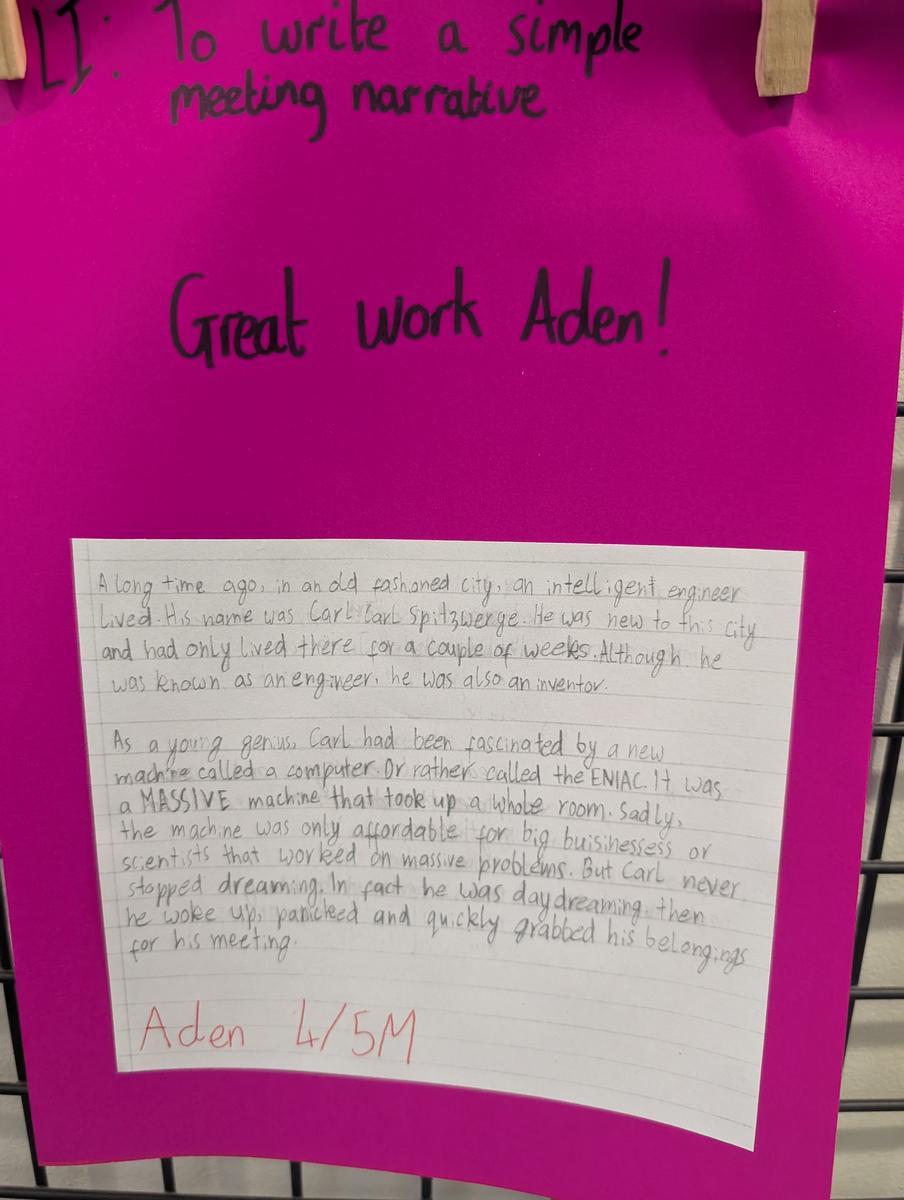 LI: To write a simple
meeting narrative
Great work Aden!
A long time ago, in an old fashoned city, an intelligent engineer
lived. His name was Carl. Carl Spitzwerge. He was new to this city
and had only lived there for a couple of weeks. Although he
was known as an engineer, he was also an inventor.
As a young genius, Carl had been fascinated by a new
machine called a computer. Or rather called the ENIAC. It was
a MASSIVE machine that took up a whole room. Sadly,
the machine was only affordable for big buisinessess or
scientists that worked on massive problems. But Carl never
stopped dreaming. In fact he was daydreaming. then
he woke up, panicked and quickly grabbed his belongings
for his meeting.
Aden 4/5M